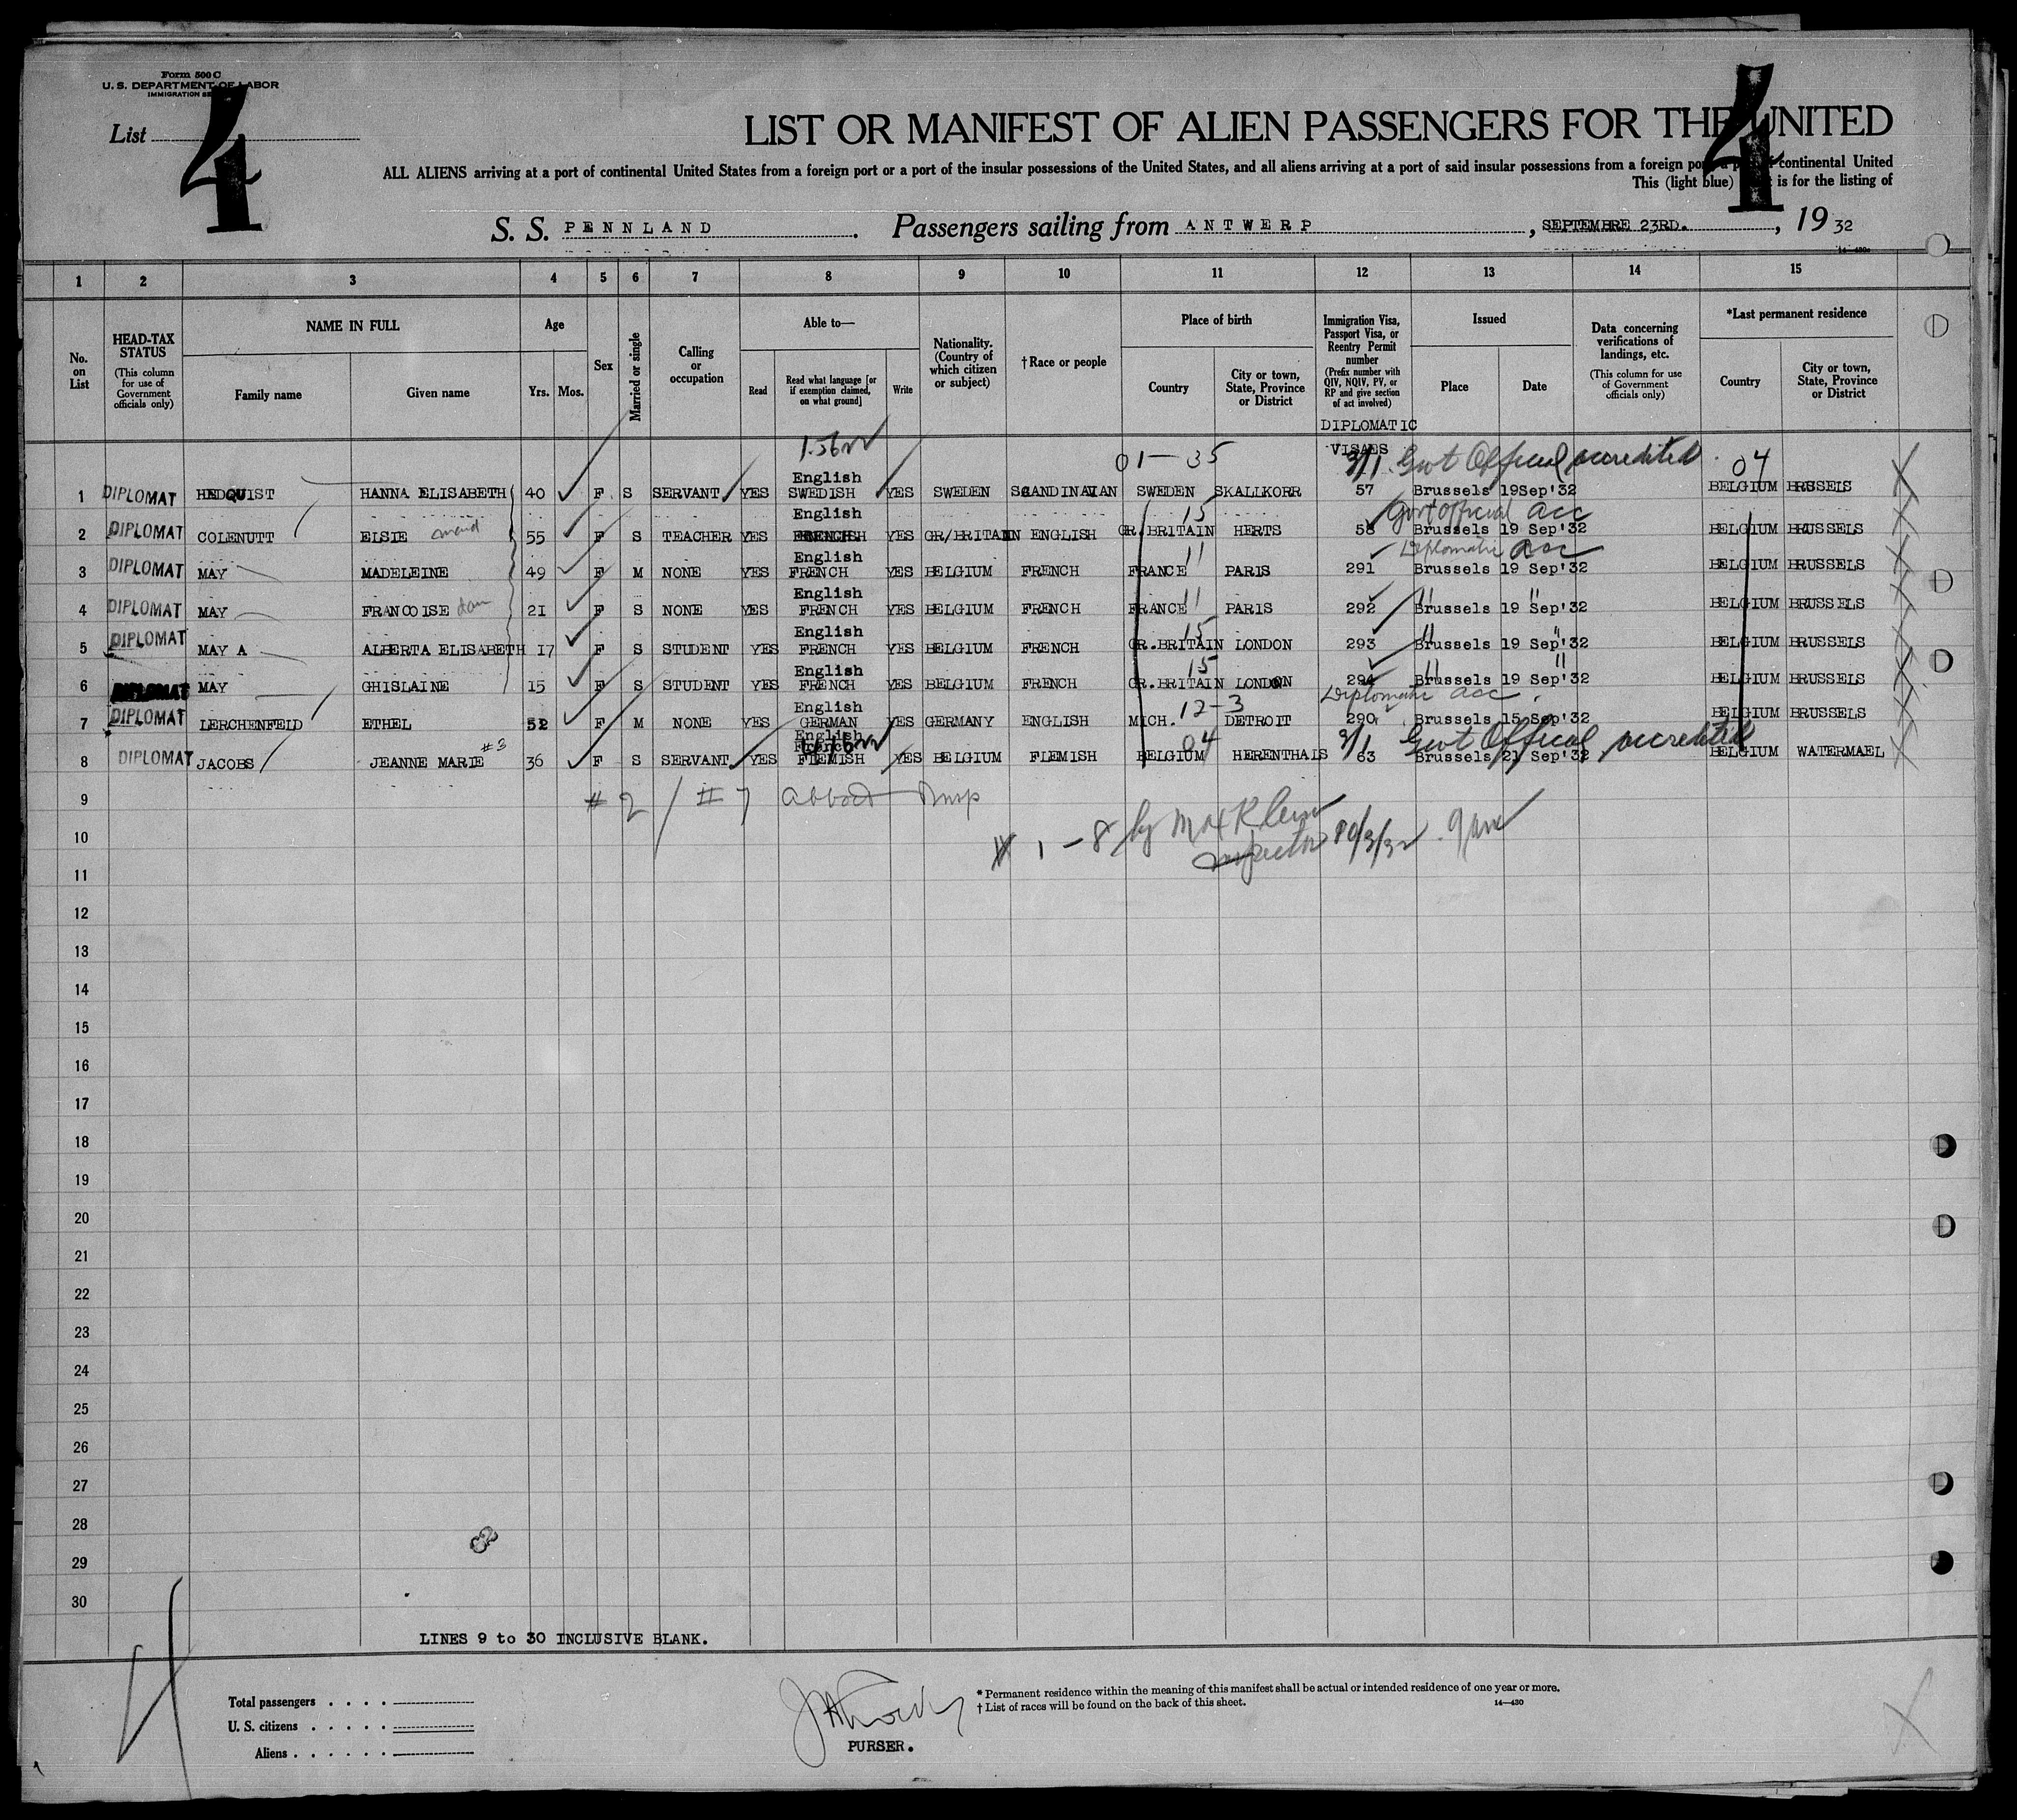 Form 500 C
U. S. DEPARTMENT OF LABOR
IMMIGRATION
List 4
4
LIST OR MANIFEST OF ALIEN PASSENGERS FOR THE UNITED
ALL ALIENS arriving at a port of continental United States from a foreign port or a port of the insular possessions of the United States, and all aliens arriving at a port of said insular possessions from a foreign port, a port of continental United
This (light blue) is for the listing of
S. S. PENNLAND. Passengers sailing from ANTWERP, SEPTEMBRE 23RD., 19 32
14—430c
1 2 3 4 5 6 7 8 9 10 11 12 13 14 15
No. on List
HEAD-TAX STATUS (This column for use of Government officials only)
NAME IN FULL
Family name
Given name
Age
Yrs.
Mos.
Sex
Married or single
Calling or occupation
Able to—
Read
Read what language [or if exemption claimed, on what ground]
Write
Nationality. (Country of which citizen or subject)
†Race or people
Place of birth
Country
City or town, State, Province or District
Immigration Visa, Passport Visa, or Reentry Permit number (Prefix number with QIV, NQIV, PV, or RP and give section of act involved)
DIPLOMATIC
VISAES
Issued
Place
Date
Data concerning verifications of landings, etc. (This column for use of Government officials only)
*Last permanent residence
Country
City or town, State, Province or District
01-35 3/1 Govt Official accredited 04
1 DIPLOMAT HEDQUIST HANNA ELISABETH 40 F S SERVANT YES English SWEDISH YES SWEDEN SCANDINAVIAN SWEDEN SKALLKORR 57 Brussels 19Sep'32 BELGIUM BRUSSELS
15 Govt Official acc
2 DIPLOMAT COLENUTT ELSIE 55 F S TEACHER YES English YES GR/BRITAIN ENGLISH GR.BRITAIN HERTS 58 Brussels 19 Sep'32 BELGIUM BRUSSELS
11 Diplomatic acc
3 DIPLOMAT MAY MADELEINE 49 F M NONE YES English FRENCH YES BELGIUM FRENCH FRANCE PARIS 291 Brussels 19 Sep'32 BELGIUM BRUSSELS
11 " "
4 DIPLOMAT MAY FRANCOISE 21 F S NONE YES English FRENCH YES BELGIUM FRENCH FRANCE PARIS 292 Brussels 19 Sep'32 BELGIUM BRUSSELS
15 " "
5 DIPLOMAT MAY A ALBERTA ELISABETH 17 F S STUDENT YES English FRENCH YES BELGIUM FRENCH GR.BRITAIN LONDON 293 Brussels 19 Sep'32 BELGIUM BRUSSELS
15 " "
6 DIPLOMAT MAY GHISLAINE 15 F S STUDENT YES English FRENCH YES BELGIUM FRENCH GR.BRITAIN LONDON 294 Brussels 19 Sep'32 BELGIUM BRUSSELS
12-3 Diplomatic acc
7 DIPLOMAT LERCHENFELD ETHEL 52 F M NONE YES English GERMAN YES GERMANY ENGLISH MICH. DETROIT 290 Brussels 15 Sep'32 BELGIUM BRUSSELS
#3 04 3/1 Govt Official accredited
8 DIPLOMAT JACOBS JEANNE MARIE 36 F S SERVANT YES English French FLEMISH YES BELGIUM FLEMISH BELGIUM HERENTHALS 63 Brussels 21 Sep'32 BELGIUM WATERMAEL
9
# 2 / # 7
10
1 - 8 by Max Klein
Inspector 10/3/32
11
12
13
14
15
16
17
18
19
20
21
22
23
24
25
26
27
28
29
30
LINES 9 to 30 INCLUSIVE BLANK.
Total passengers
U. S. citizens
Aliens
PURSER.
* Permanent residence within the meaning of this manifest shall be actual or intended residence of one year or more.
† List of races will be found on the back of this sheet.
14—430